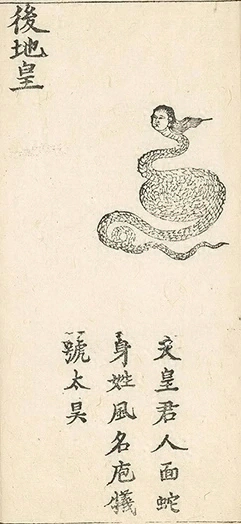 後地皇
天皇君人面蛇
身姓風名庖犧
號太昊